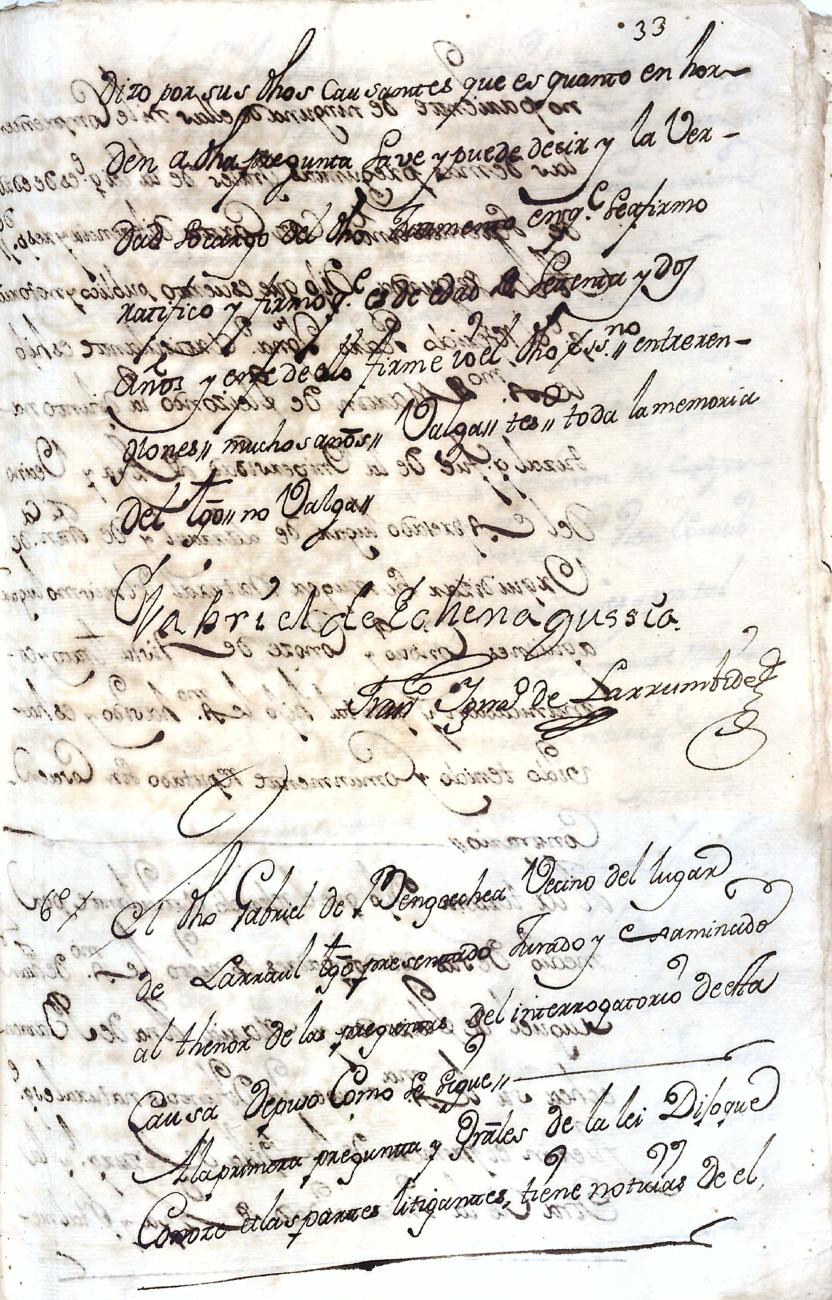 33
Dizo por sus dhos Causantes que es quanto en hor-
den a dha pregunta save y puede desir y la Ver-
dad so cargo del dho Juramento en q.e se afirmo
ratifico y firmo q.e es de edad de setenta y dos
años y en fe de ello firme io el dho ess.no entreren-
glones,, muchos años,, Valga,, tes,, toda la memoria
del tgō,, no Valga,,
Gabriel de Echenagussia
Fran.co Ign.o de Larrumbide
6º / El dho Gabriel de Bengoechea Vecino del lugar
de Larraul tgō presentado Jurado y examinado
al thenor de las preguntas del interrogatorio desta
Causa depuso Como se sigue,,
A la primera pregunta y Grāles de la lei Diso que
Conoze a las partes litigantes, tiene noticias de el,